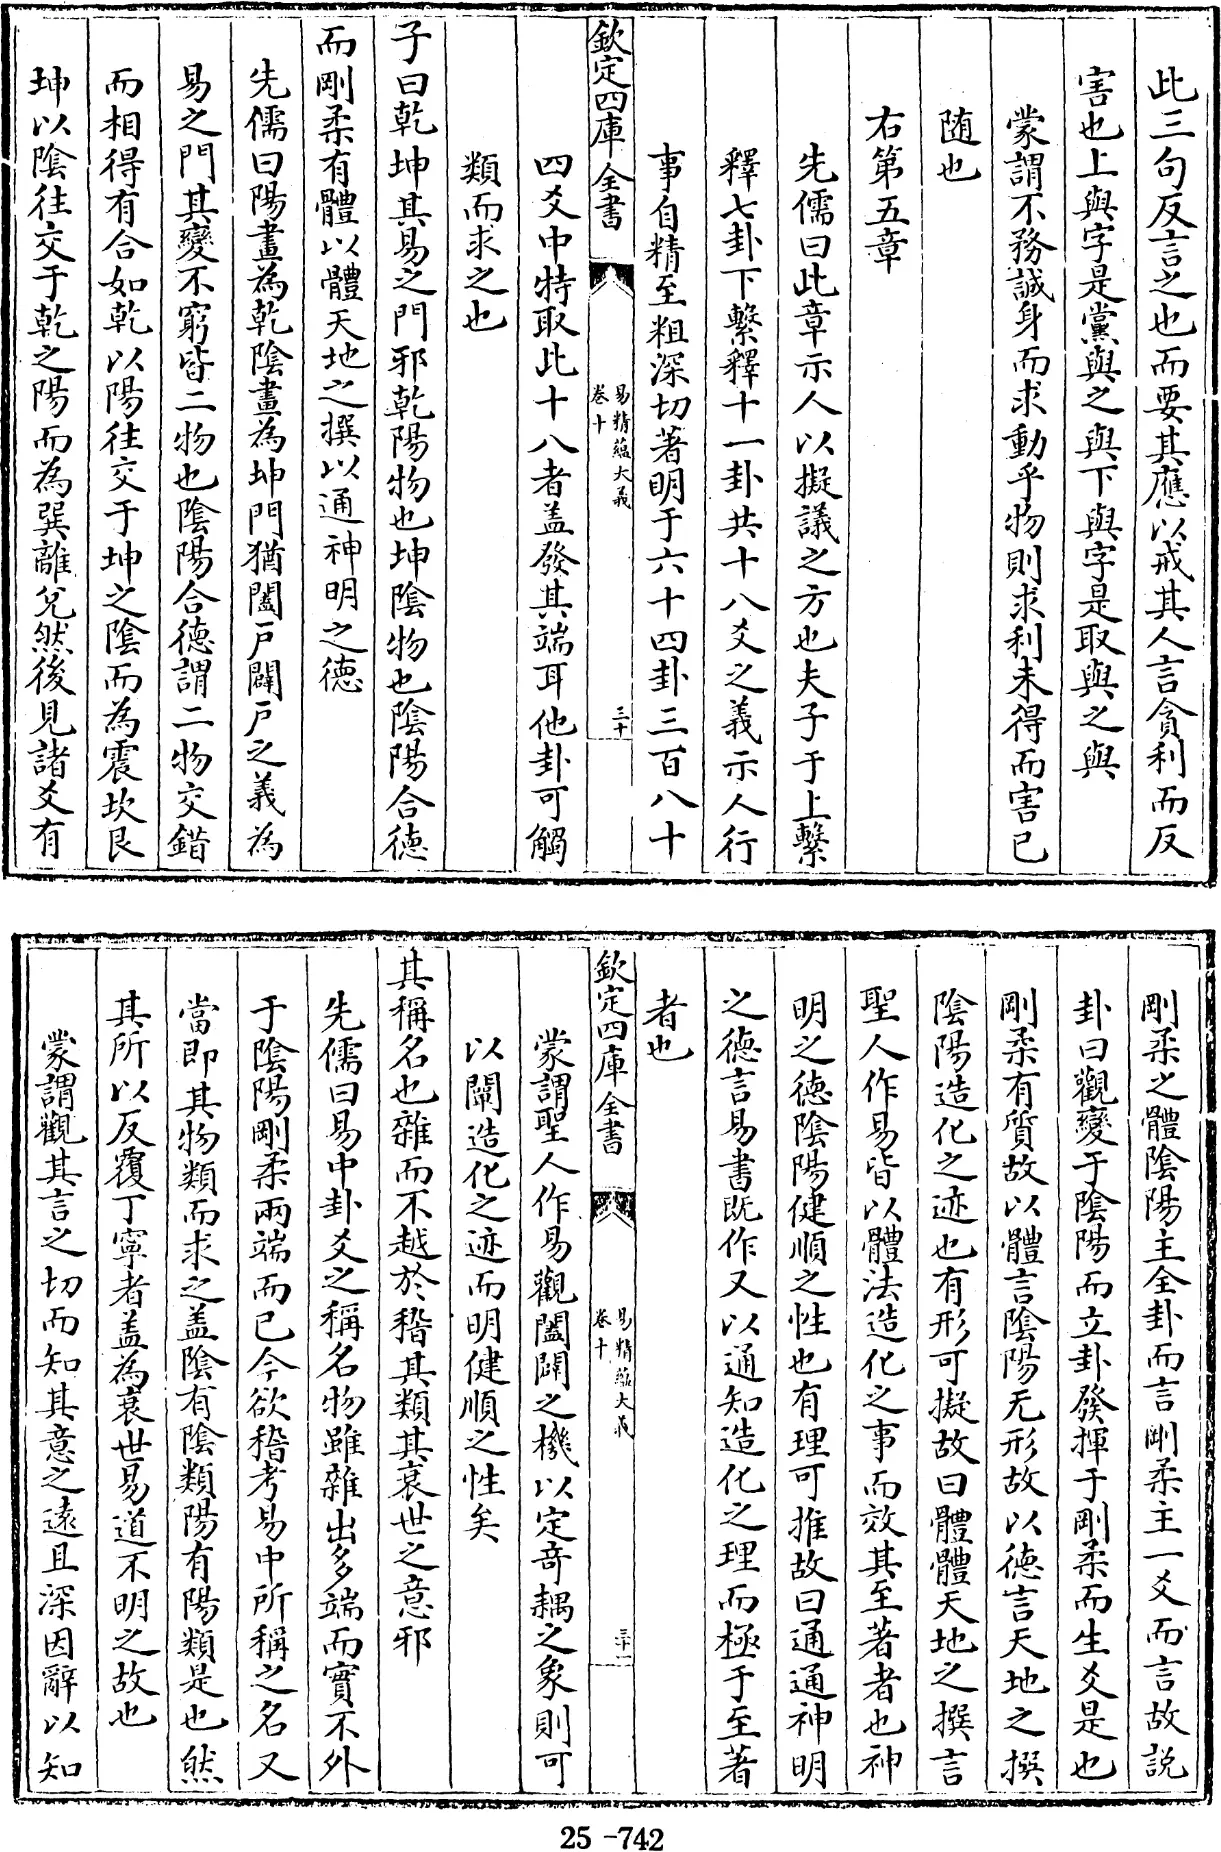 此三句反言之也而要其應以戒其人言貪利而反
害也上與字是黨與之與下與字是取與之與
蒙謂不務誠身而求動乎物則求利未得而害已
随也
右第五章
先儒曰此章示人以擬議之方也夫子于上繫
釋七卦下繫釋十一卦共十八爻之義示人行
事自精至粗深切著明于六十四卦三百八十
欽定四庫全書
易精蘊大義
卷十
三十
四爻中特取此十八者盖發其端耳他卦可觸
類而求之也
子曰乾坤其易之門邪乾陽物也坤陰物也陰陽合德
而剛柔有體以體天地之撰以通神明之德
先儒曰陽畫為乾陰畫為坤門猶闔戸闢戸之義為
易之門其變不窮皆二物也陰陽合德謂二物交錯
而相得有合如乾以陽往交于坤之陰而為震坎艮
坤以陰往交于乾之陽而為巽離兌然後見諸爻有
剛柔之體陰陽主全卦而言剛柔主一爻而言故説
卦曰觀變于陰陽而立卦發揮于剛柔而生爻是也
剛柔有質故以體言陰陽无形故以德言天地之撰
陰陽造化之迹也有形可擬故曰體體天地之撰言
聖人作易皆以體法造化之事而效其至著者也神
明之德陰陽健順之性也有理可推故曰通通神明
之德言易書既作又以通知造化之理而極于至著
者也
欽定四庫全書
易精蘊大義
卷十
三十一
蒙謂聖人作易觀闔闢之機以定竒耦之象則可
以闡造化之迹而明健順之性矣
其稱名也雜而不越於稽其類其衰世之意邪
先儒曰易中卦爻之稱名物雖雜出多端而實不外
于陰陽剛柔兩端而已今欲稽考易中所稱之名又
當即其物類而求之盖陰有陰類陽有陽類是也然
其所以反覆丁寧者盖為衰世易道不明之故也
蒙謂觀其言之切而知其意之遠且深因辭以知
25-742